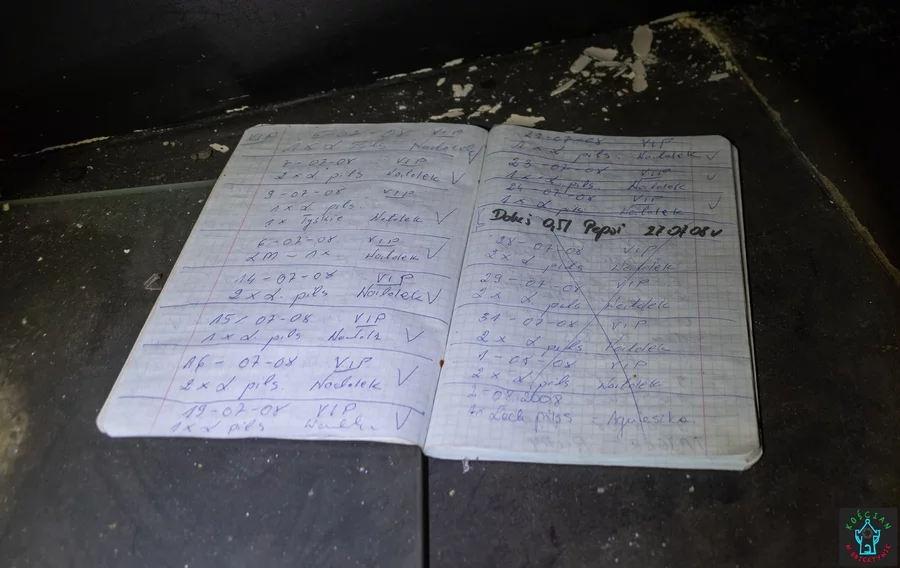 VIP 5-07-08 VIP
1 x L pils Naitolek
7-07-08 VIP
2 x L pils Naitolek
9-07-08 VIP
1 x L pils.
1 x Tyskie Naitolek
6-07-08 VIP
LM - 1x Naitolek
14-07-08 VIP
2 x L. pils Naitolek
15-07-08 VIP
1 x L pils
16-07-08 VIP
2 x L pils. Naitolek
19-07-08 VIP
1 x L pils
22-07-08 VIP
1 x L pils. Naitolek
23-07-08 VIP
1 x L pils Naitolek
24-07-08 VIP
1 x L pils Naitolek
0,5l Pepsi 27.07.08
28-07-08 VIP
2 x L pils Naitolek
29-07-08 VIP
2 x L pils Naitolek
31-07-08 VIP
2 x L pils Naitolek
1-08-08 VIP
2 x L pils Naitolek
2-08-2008
Lech pilss - Agnieszka
KOŚCIAN
W OBIEKTYWIE